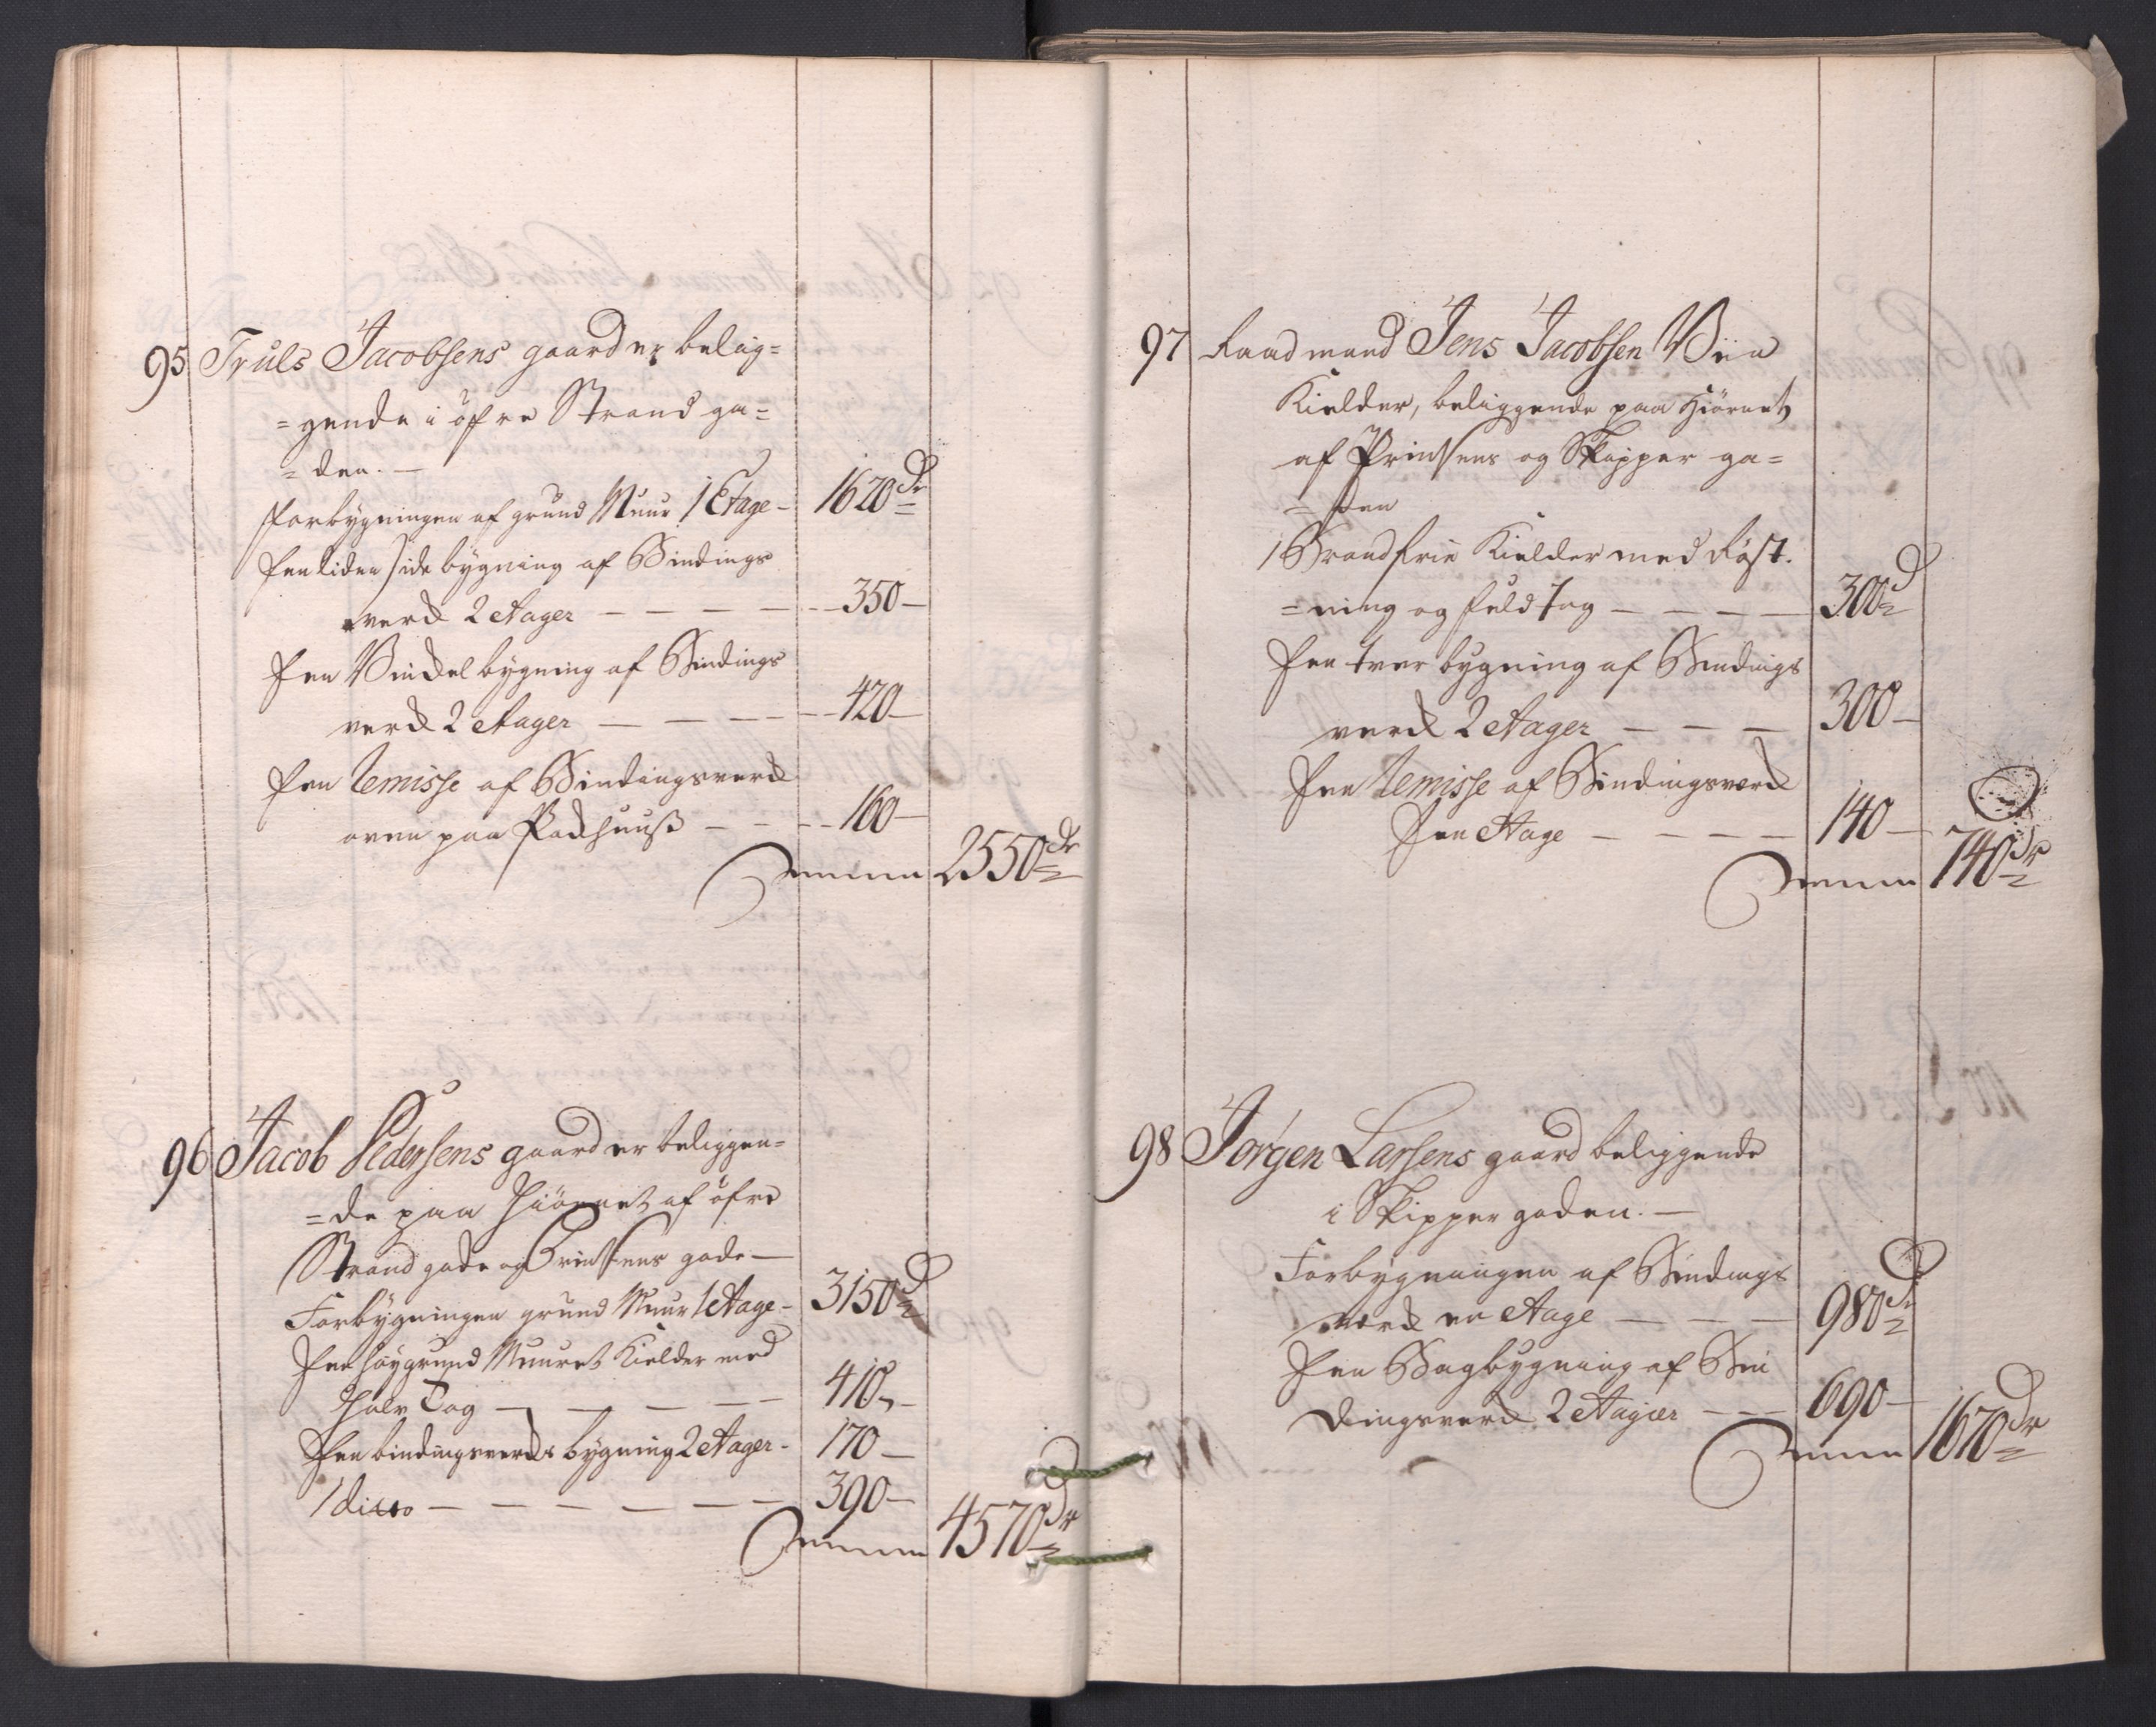 95 Truls Jacobsens gaard er belig=
=gende i öfre Strand ga=
=den. —
Forbygningen af grund Muur 1 Etage — 1620 Dr
Een liden Side bygning af Bindings
verck 2 Etager — — — — 350 —
Een Vinckel bygning af Bindings
verck 2 Etager — — — — 420 —
Een Remisse af Bindingsverck
oven paa Packhuuß — — — 160 —
Summa 2550 Dr
96 Jacob Pedersens gaard er beliggen=
=de paa Hiörnet af öfre
Strand gade og Printsens gade —
Forbygningen grund Muur 1 Etage — 3150 Dr
Een höy grund Muuret Kielder med
Halv Tag — — — — — 410 —
Een bindingsvercks bygning 2 Etager — 170 —
1 ditto — — — — — — 390 —
Summa 4570 Dr
97 Raadmand Jens Jacobsen Viin
Kielder, beliggende paa Hiörnet
af Printsens og Skipper ga=
=den
1 Brandfrie Kielder med Röst.
=ning og fuld Tag — — — — 300 D
Een tver bygning af Bindings
verck 2 Etager — — — 300 —
Een Remisse af Bindingsverck
Een Etage — — — — 140 —
Summa 740 Dr
98 Jørgen Larsens gaard beliggende
i Skipper gaden. —
Forbygningen af Bindings
verck en Etage — — — 980 Dr
Een Bagbygning af Bin
dingsverck 2 Etagier — — 690 —
Summa 1670 Dr